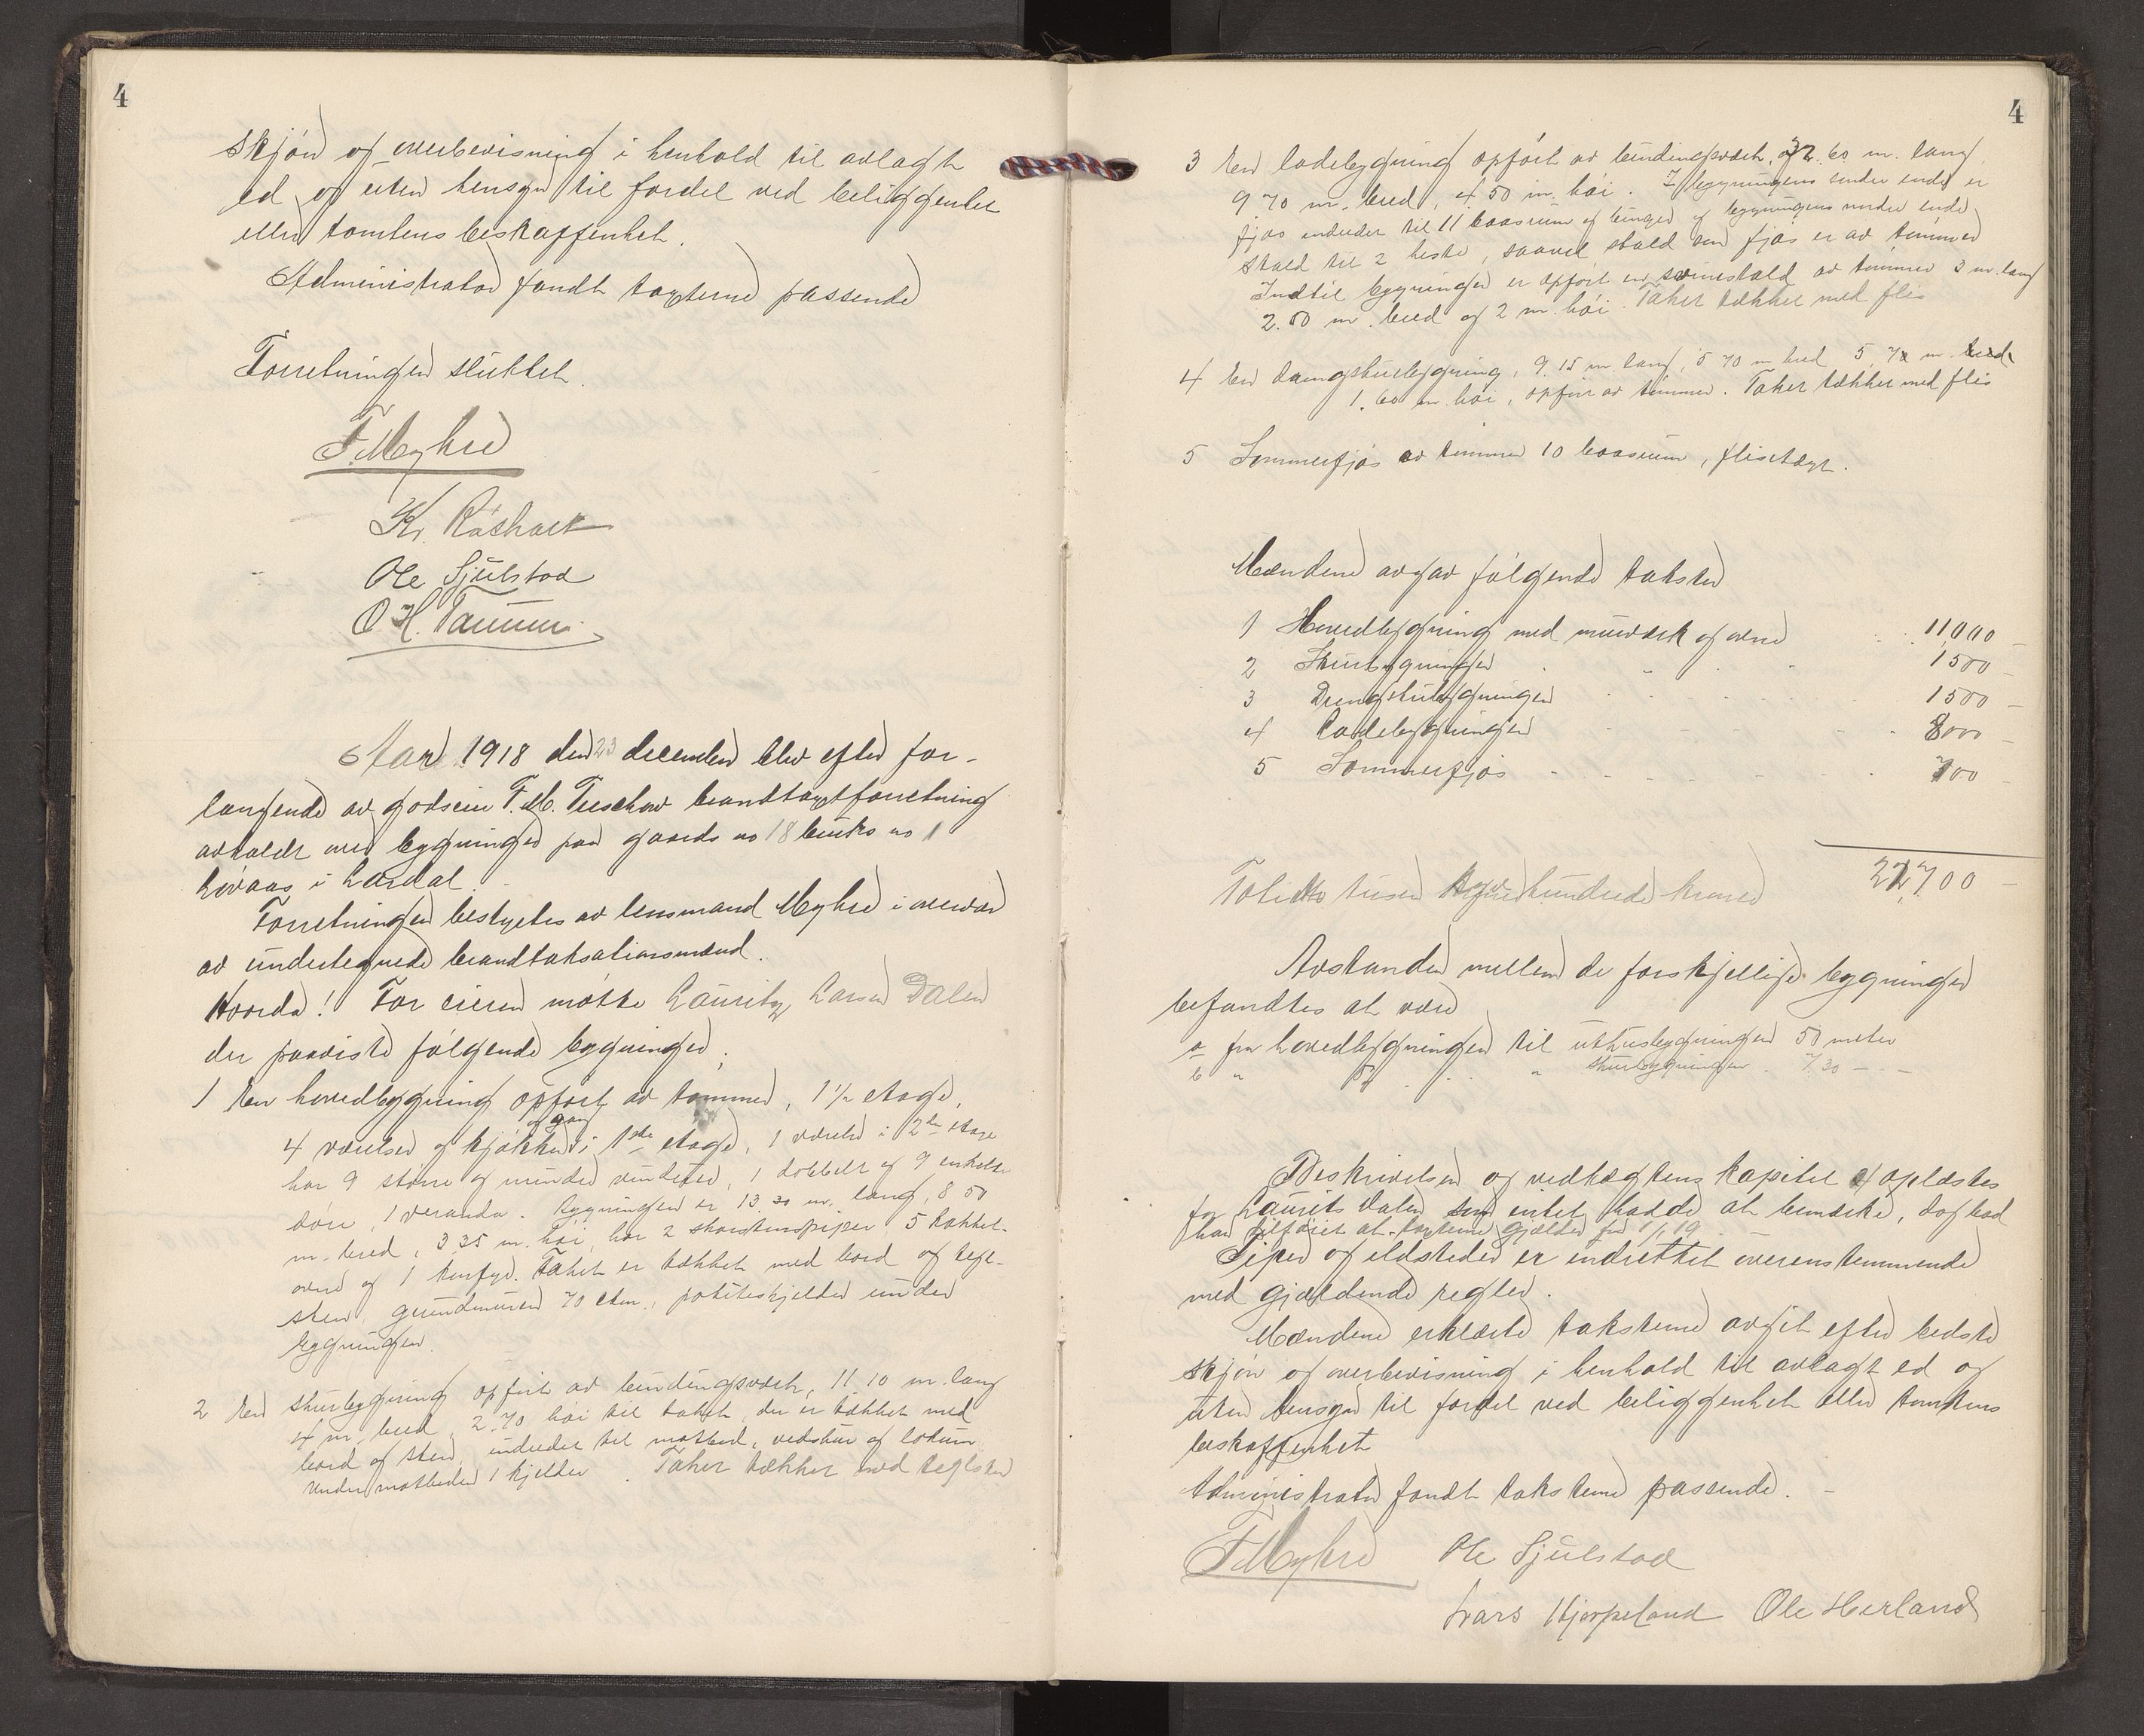 4
skjøn og overbevisning i henhold til avlagt
ed og uten hensyn til fordel ved beliggenhet
eller tomtens beskaffenhet.
Administrator fandt taxterne passende
Forretningen sluttet.
F. Myhre
Kr. Råsholt
Ole Sjulstad
O. H. Tanum
Aar 1918 den 23 december blev efter for-
langende av godseier F. M. Treschow brandtaxtforretning
avholdt over bygninger paa gaards no 18 bruks no 1
Løvaas i Lardal.
Forretningen bestyrtes av lensmand Myhre i overvær
av undertegnede brandtaksationsmænd.
Hvorda! For eieren møtte Lauritz Larsen Dalen
der paaviste følgende bygninger:
1 En hovedbygning opført av tømmer, 1 1/2 etage,
og gang
4 værelser og kjøkken i 1ste etage, 1 værelse i 2den etage
har 9 større og mindre vinduer, 1 dobbelt og 9 enkelte
døre, 1 veranda. Bygningen er 13.30 m. lang, 8 50
m. bred, 3.35 m. høi, har 2 skorstenspiper 5 kakkel-
ovne og 1 komfyr. Taket er tækket med bord og tegl-
sten, grundmuren 70 ctm., poteteskjelder under
bygningen.
2 En skurbygning opført av bindingsverk, 11.10 m. lang
4 m. bred, 2.70 høi til taket, der er tækket med
bord og sten, indredet til matbod, vedskur og lokum
under matboden 1 kjelder. Taket tækket med teglsten
4
3 En ladebygning opført av bindingsværk, 32.60 m. lang
9 70 m. bred, 4 50 m. høi. I bygningens søndre ende er
fjøs indredet til 11 baasrum og binger og bygningens nordre ende
stald til 2 heste, saavel stald som fjøs er av tømmer
Indtil bygningen er opført en svinestald av tømmer 3 m. lang
2.50 m. bred og 2 m. høi. Taket tækket med flis
4 En drengstubygning, 9.15 m. lang, 5 70 m. bred 5,70 m. bred
1.60 m. høi, opført av tømmer. Taket tækket med flis
5 Sommerfjøs av tømmer 10 baasrum, flistækt.
Mændene avgav følgende takster
1 Hovedbygning med murværk og ovne 11000 –
2 Skurbygningen 1500 –
3 Drengstubygningen 1500 –
4 Ladebygningen 8000 –
5 Sommerfjøs 700 –
22,700 –
Toti to tusen syvhundrede kroner
Avstanden mellem de forskjellige bygninger
befandtes at være
a fra hovedbygningen til uthusbygningen 50 meter
b " " " skurbygningen 7.30 – " –
Beskrivelsen og vedtægtens kapitel 4 oplæstes
for Laurits Dalen som intet hadde at bemærke, dog bad
han tilført at taxterne gjælder fra 1/1 19
Piper og ildsteder er indrettet overenstemmende
med gjældende regler.
Mændene erklærte taksterne avgit efter bedste
skjøn og overbevisning i henhold til avlagt ed og
uten hensyn til fordel ved beliggenhet eller tomtens
beskaffenhet
Administrator fandt taksterne passende. –
F Myhre Ole Sjulstad
Lars Kjørpeland Ole Herland